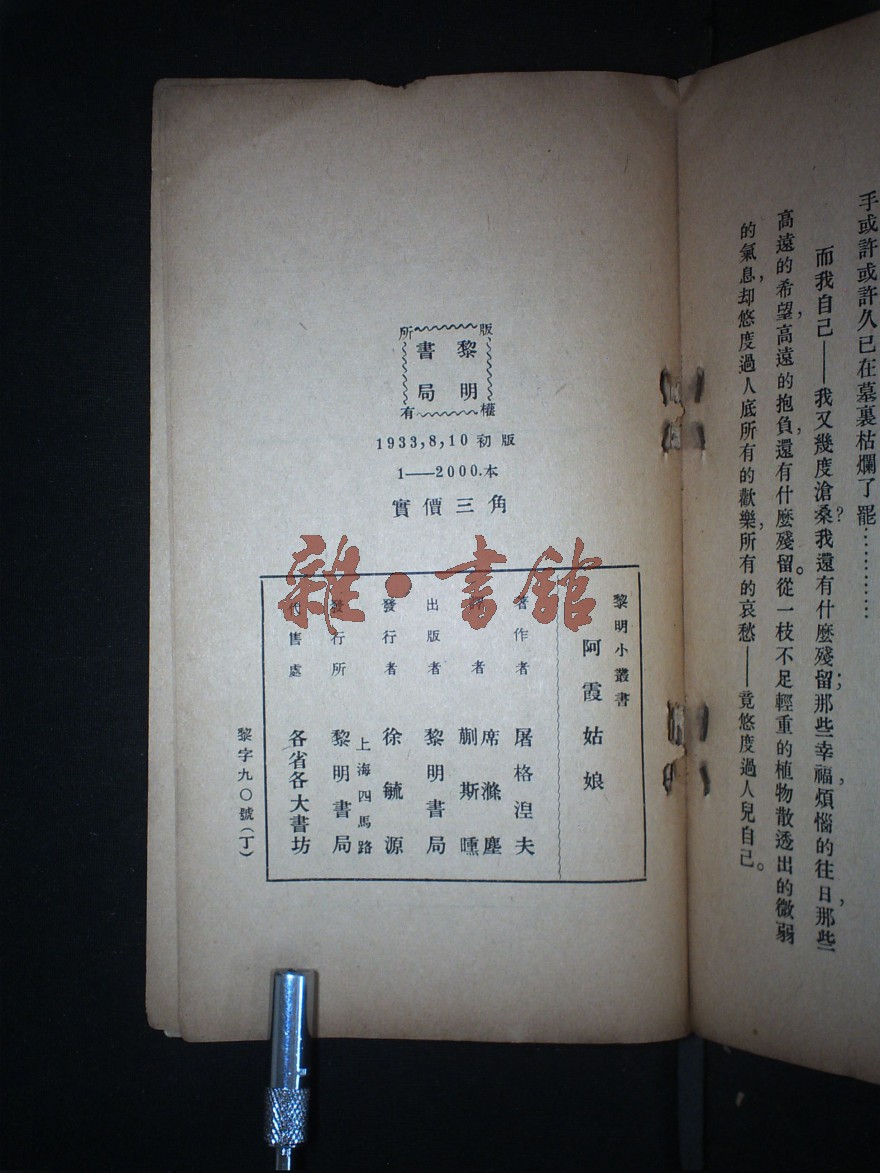 手或許或許久已在墓裏枯爛了罷…………
而我自己——我又幾度滄桑?我還有什麼殘留;那些幸福,煩惱的往日,那些
高遠的希望,高遠的抱負,還有什麼殘留。從一枝不足輕重的植物散透出的微弱
的氣息,却悠度過人底所有的歡樂,所有的哀愁——竟悠度過人兒自己。
版權所有
黎明
書局
1933,8,10 初版
1——2000.本
實價三角
黎明小叢書
阿霞姑娘
著作者 屠格涅夫
譯者 席滌塵 蒯斯曛
出版者 黎明書局
發行者 徐毓源
發行所 上海四馬路 黎明書局
代售處 各省各大書坊
黎字九〇號(丁)
雜·書館